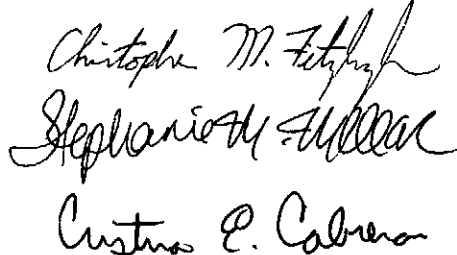 Christopher M. Fitzhugh
Stephanie M.
Cristina E. Cabrera